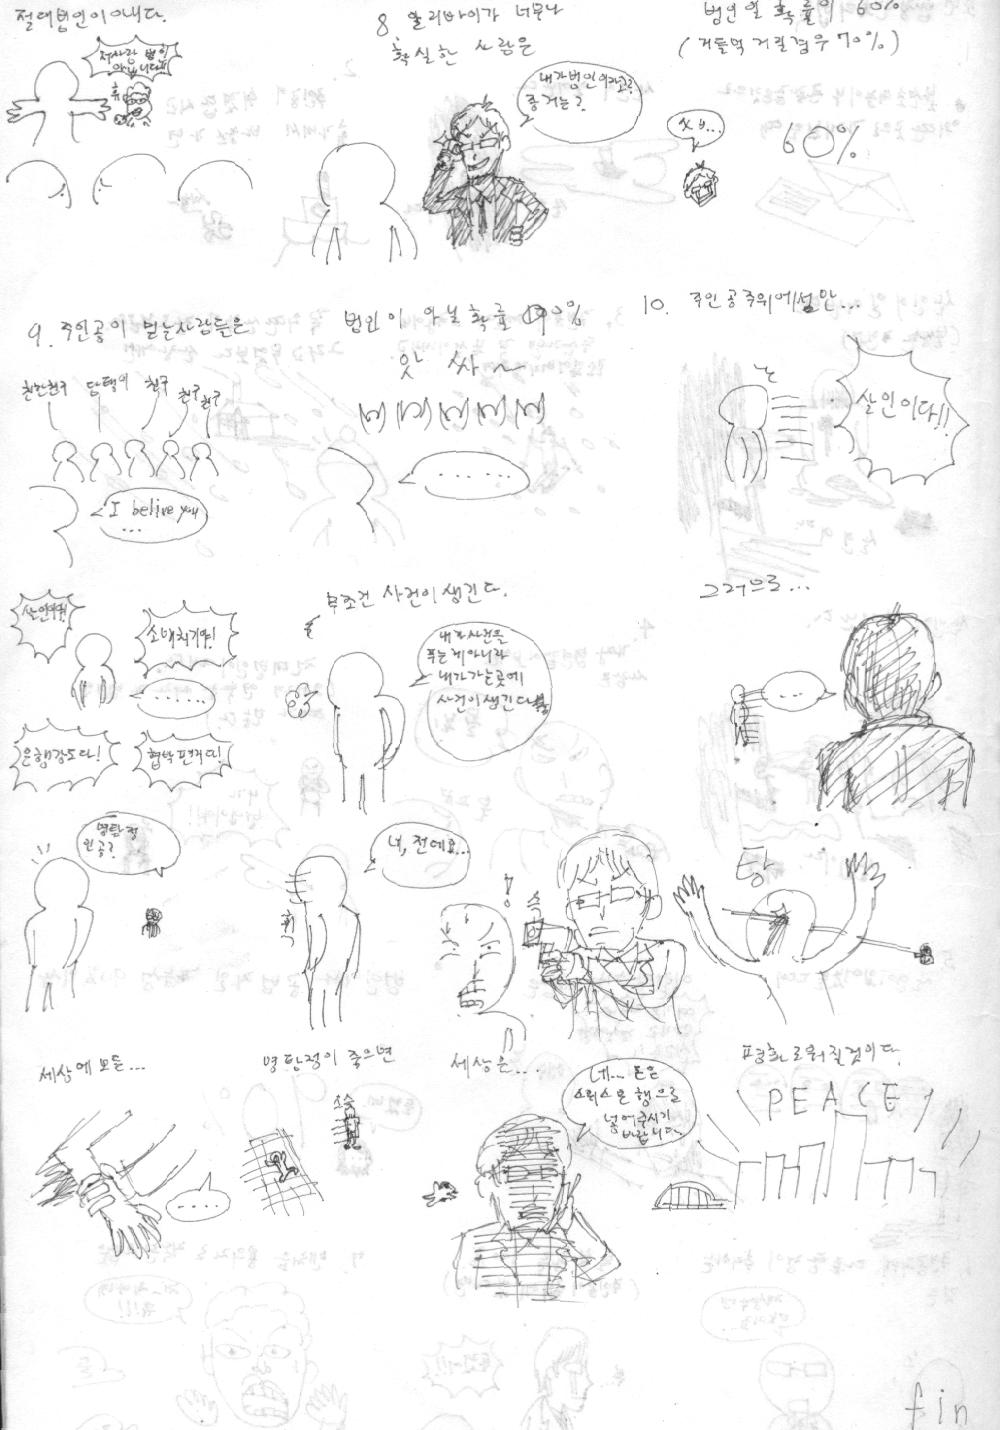 절대범인이아니다.
저사람 범인
아닙니다!!
휴
8 알리바이가 너무나
확실한 사람은
내가범인이라고?
증거는?
범인일 확률이 60%
(거들먹거릴경우 70%)
씨ㅂ...
60%
9. 주인공이 믿는사람들은
친한친구
담탱이
친구
친구
친구
I belive you
...
범인이 아닐 확률 100%
앗싸~
.....
10. 주인공주위에선만...
살인이다!!
소매치기야!
......
은행강도다!
협박편지다!
무조건 사건이생긴다.
내가사건을
푸는게아니라
내가가는곳에
사건이생긴다
그러므로...
...
명탐정
인공?
네, 전데요...
휙
!
슥
탕
세상에모든...
....
명탐정이 죽으면
스슥
세상은...
네... 돈은
스위스은행으로
넣어주시기
바랍니다.
평화로워질것이다.
PEACE
fin